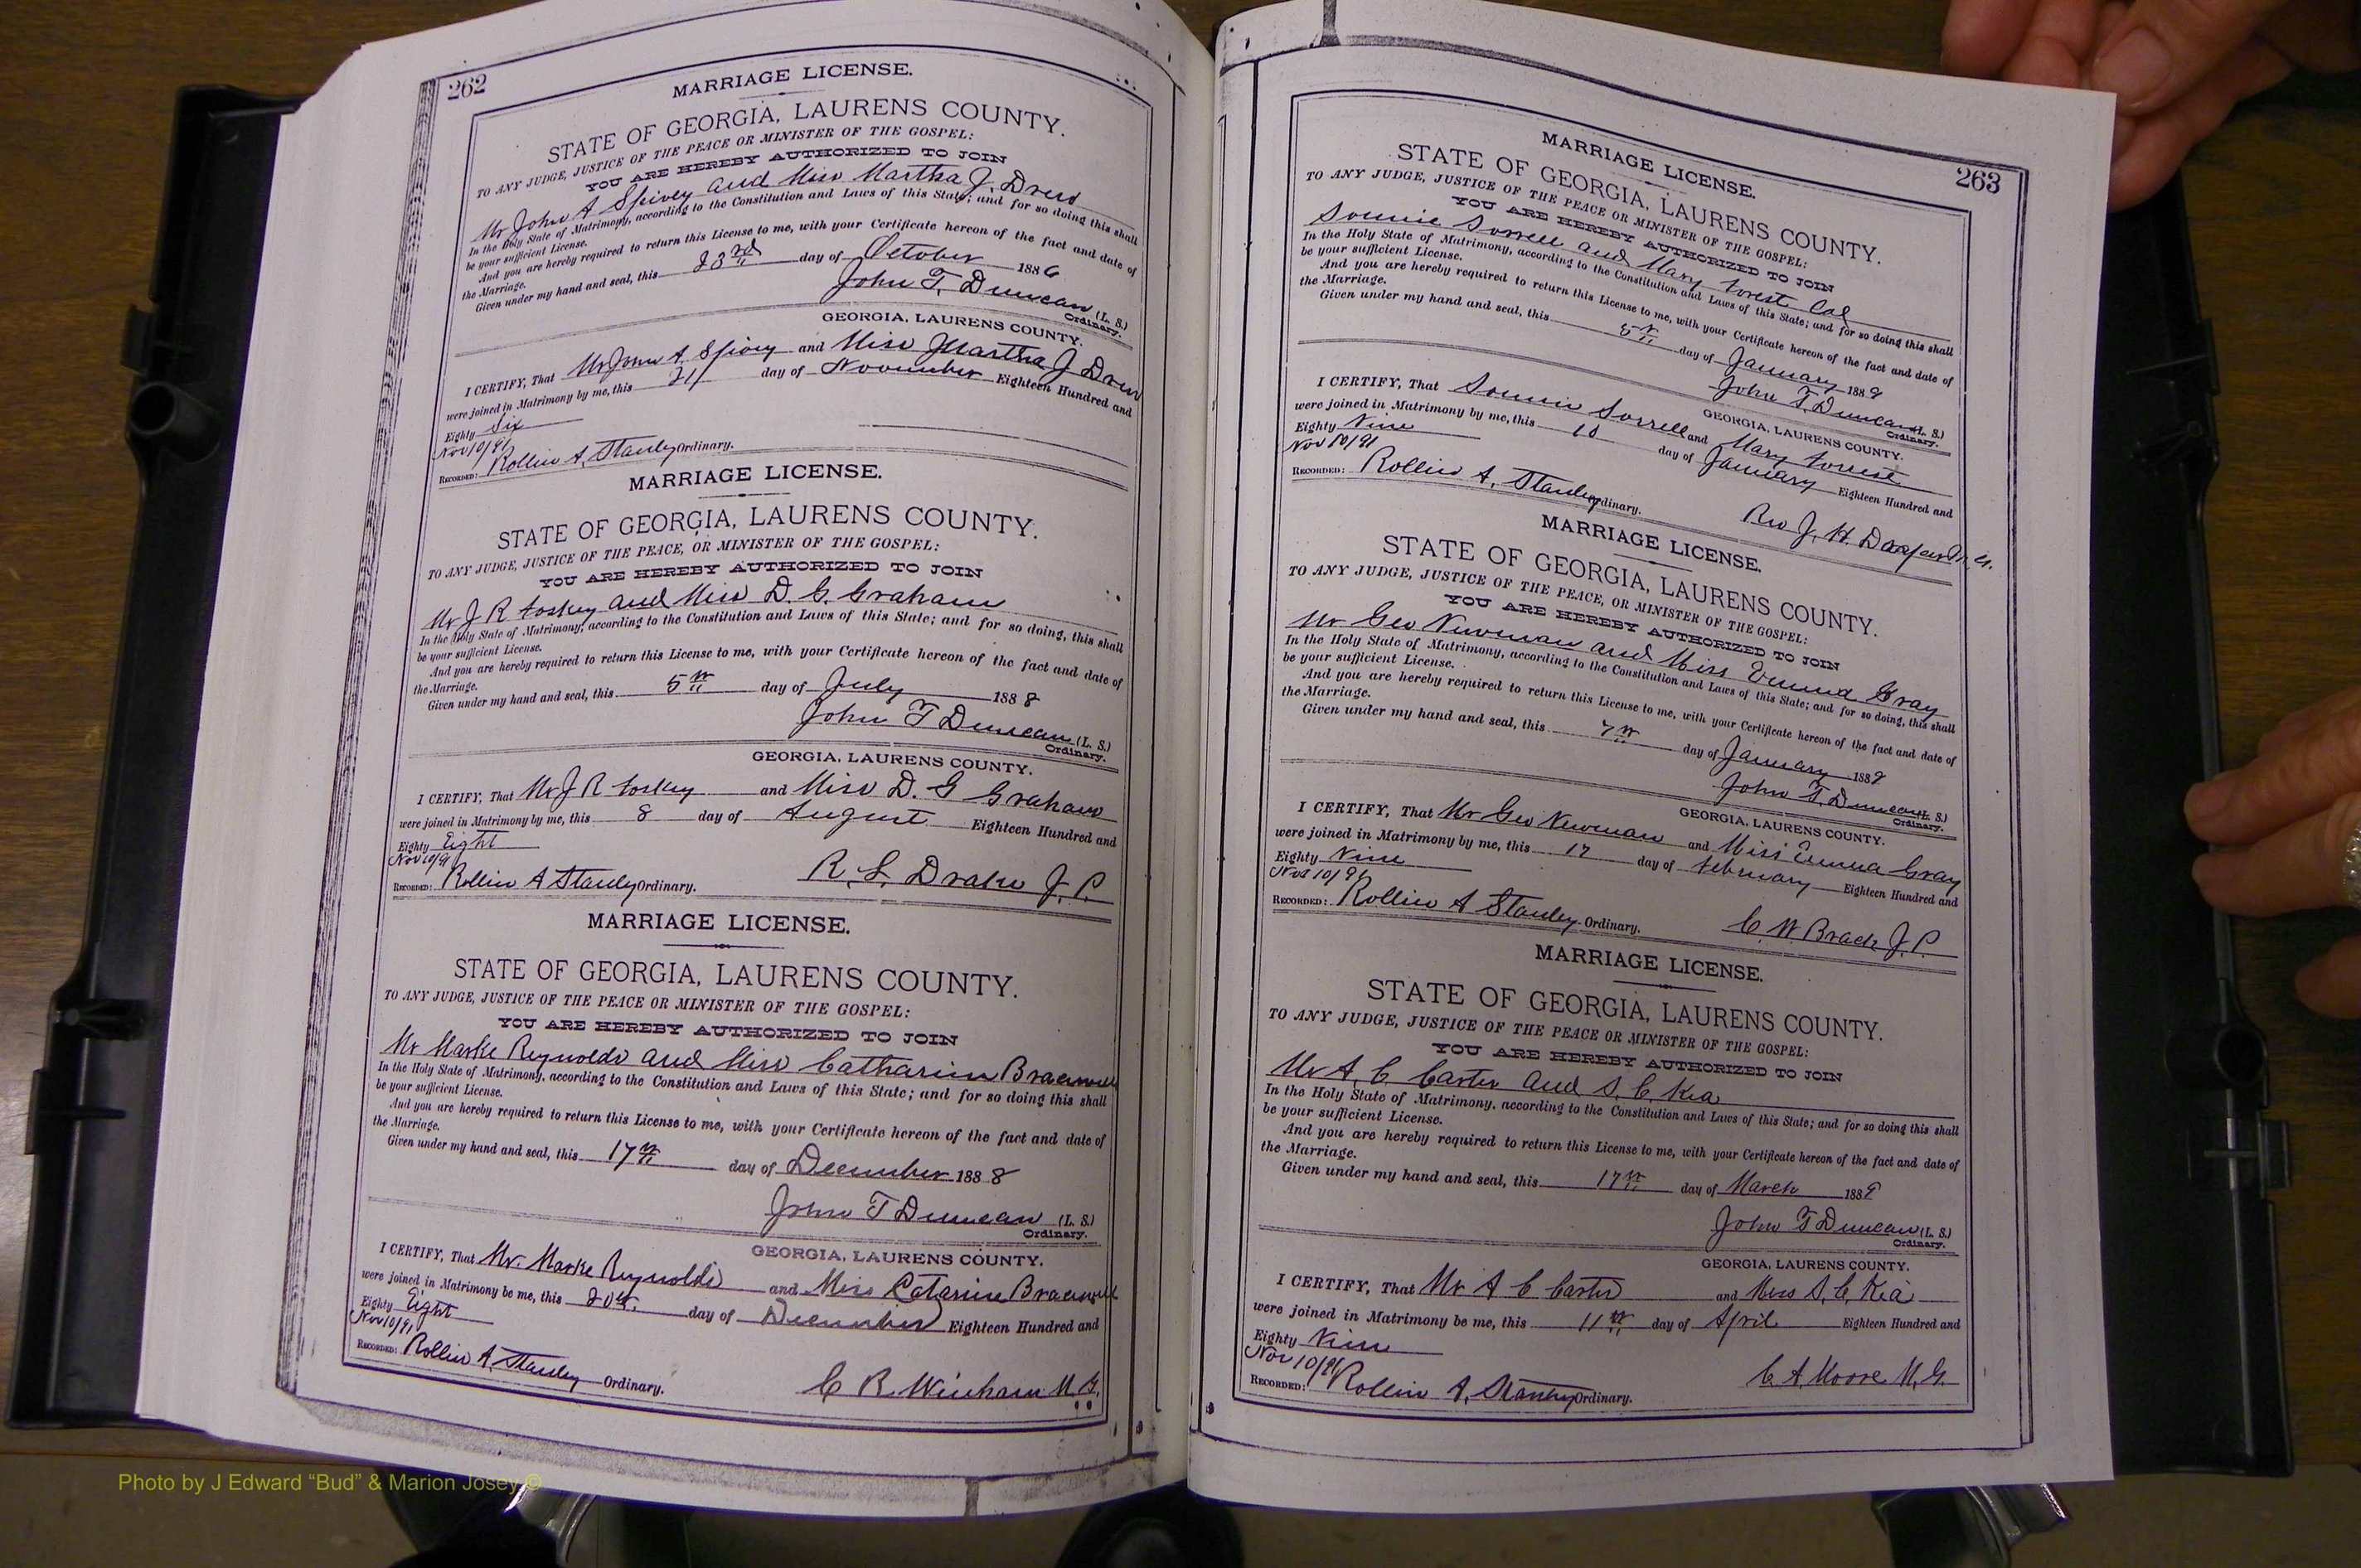 262
MARRIAGE LICENSE.
STATE OF GEORGIA, LAURENS COUNTY.
TO ANY JUDGE, JUSTICE OF THE PEACE OR MINISTER OF THE GOSPEL:
YOU ARE HEREBY AUTHORIZED TO JOIN
Mr John A Spivey and Miss Martha J. Drew
In the Holy State of Matrimony, according to the Constitution and Laws of this State; and for so doing this shall
be your sufficient License.
And you are hereby required to return this License to me, with your Certificate hereon of the fact and date of
the Marriage.
Given under my hand and seal, this 23rd day of October 1886
John T. Duncan (L. S.)
Ordinary.
GEORGIA, LAURENS COUNTY.
I CERTIFY, That Mr John A. Spivey and Miss Martha J Drew
were joined in Matrimony by me, this 21 day of November Eighteen Hundred and
Eighty Six
Nov 10/91
RECORDED: Rollin A. Stanley Ordinary.
MARRIAGE LICENSE.
STATE OF GEORGIA, LAURENS COUNTY.
TO ANY JUDGE, JUSTICE OF THE PEACE, OR MINISTER OF THE GOSPEL:
YOU ARE HEREBY AUTHORIZED TO JOIN
Mr J R Foskey and Miss D. G. Graham
In the Holy State of Matrimony, according to the Constitution and Laws of this State; and for so doing, this shall
be your sufficient License.
And you are hereby required to return this License to me, with your Certificate hereon of the fact and date of
the Marriage.
Given under my hand and seal, this 5th day of July 1888
John T Duncan (L. S.)
Ordinary.
GEORGIA, LAURENS COUNTY.
I CERTIFY, That Mr J R Foskey and Miss D. G Graham
were joined in Matrimony by me, this 8 day of August Eighteen Hundred and
Eighty Eight
Nov 10/91
RECORDED: Rollin A Stanley Ordinary. R. L. Drake J. P.
MARRIAGE LICENSE.
STATE OF GEORGIA, LAURENS COUNTY.
TO ANY JUDGE, JUSTICE OF THE PEACE OR MINISTER OF THE GOSPEL:
YOU ARE HEREBY AUTHORIZED TO JOIN
Mr Marke Reynolds and Miss Catharine Bracewell
In the Holy State of Matrimony, according to the Constitution and Laws of this State; and for so doing this shall
be your sufficient License.
And you are hereby required to return this License to me, with your Certificate hereon of the fact and date of
the Marriage.
Given under my hand and seal, this 17th day of December 1888
John T Duncan (L. S.)
Ordinary.
GEORGIA, LAURENS COUNTY.
I CERTIFY, That Mr. Marke Reynolds and Miss Catarine Bracewell
were joined in Matrimony be me, this 20th. day of December Eighteen Hundred and
Eighty Eight
Nov 10/91
RECORDED: Rollin A. Stanley Ordinary.
C R Winham M. G.
263
MARRIAGE LICENSE.
STATE OF GEORGIA, LAURENS COUNTY.
TO ANY JUDGE, JUSTICE OF THE PEACE OR MINISTER OF THE GOSPEL:
YOU ARE HEREBY AUTHORIZED TO JOIN
Sonnie Sorrell and Mary Forest Col
In the Holy State of Matrimony, according to the Constitution and Laws of this State; and for so doing this shall
be your sufficient License.
And you are hereby required to return this License to me, with your Certificate hereon of the fact and date of
the Marriage.
Given under my hand and seal, this 5th day of January 1889
John T. Duncan (L. S.)
Ordinary.
GEORGIA, LAURENS COUNTY.
I CERTIFY, That Sonnie Sorrell and Mary
were joined in Matrimony by me, this 10 day of January Eighteen Hundred and
Eighty Nine
Nov 10/91
RECORDED: Rollin A. Stanley Ordinary.
Rev J. H.
MARRIAGE LICENSE.
STATE OF GEORGIA, LAURENS COUNTY.
TO ANY JUDGE, JUSTICE OF THE PEACE, OR MINISTER OF THE GOSPEL:
YOU ARE HEREBY AUTHORIZED TO JOIN
Mr Geo Newman and Miss Emma Gray
In the Holy State of Matrimony, according to the Constitution and Laws of this State; and for so doing, this shall
be your sufficient License.
And you are hereby required to return this License to me, with your Certificate hereon of the fact and date of
the Marriage.
Given under my hand and seal, this 7th day of January 1889
John T. Duncan (L. S.)
Ordinary.
GEORGIA, LAURENS COUNTY.
I CERTIFY, That Mr Geo Newman and Miss Emma Gray
were joined in Matrimony by me, this 17 day of February Eighteen Hundred and
Eighty Nine
Nov 10/91
RECORDED: Rollin A Stanley Ordinary.
C. W Brack J. P.
MARRIAGE LICENSE.
STATE OF GEORGIA, LAURENS COUNTY.
TO ANY JUDGE, JUSTICE OF THE PEACE OR MINISTER OF THE GOSPEL:
YOU ARE HEREBY AUTHORIZED TO JOIN
Mr A. C. Carter and S. C. Kea
In the Holy State of Matrimony, according to the Constitution and Laws of this State; and for so doing this shall
be your sufficient License.
And you are hereby required to return this License to me, with your Certificate hereon of the fact and date of
the Marriage.
Given under my hand and seal, this 17th day of March 1889
John T Duncan (L. S.)
Ordinary.
GEORGIA, LAURENS COUNTY.
I CERTIFY, That Mr A C Carter and Miss S. C. Kea
were joined in Matrimony be me, this 11th day of April Eighteen Hundred and
Eighty Nine
Nov 10/91
RECORDED: Rollin A. Stanley Ordinary.
C. A. Moore M. G.
Photo by J Edward “Bud” & Marion Josey ©